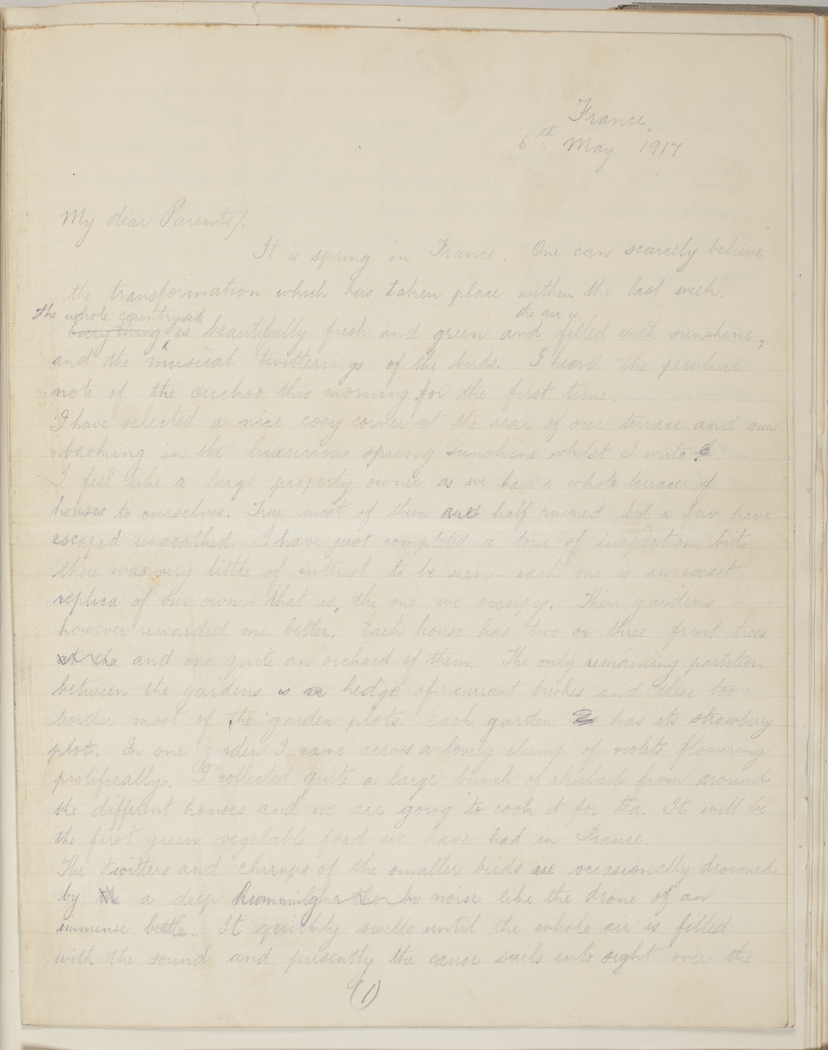 France,
6th May 1917
My dear Parents/.
It is spring in France. One can scarcely believe
the transformation which has taken place within the last week.
The whole countryside the air is
Everything is beautifully fresh and green and filled with sunshine,
and the musical twitterings of the birds. I heard the peculiar
note of the cuckoo this morning for the first time.
I have selected a nice cosy corner at the rear of our terrace and am
basking in the luxurious spring sunshine whilst I write.
I feel like a large property owner as we have a whole terrace of
houses to ourselves. True most of them are half ruined but a few have
escaped unscathed. I have just completed a tour of inspection but
there was very little of interest to be seen. each one is an exact
replica of our own – that is, the one we occupy. Their gardens
however rewarded me better. Each house has two or three fruit trees
at the and one quite an orchard of them. The only remaining partition
between the gardens is a hedge of currant bushes and these too
border most of the garden plots. Each garden has its strawbury
plot. In one garden I came across a lovely clump of violets flowering
prolifically. I collected quite a large bunch of rhubarb from around
the different houses and we are going to cook it for tea. It will be
the first green vegetable food we have had in France.
The twitters and chirups of the smaller birds are occasionally drowned
by the a deep humming noise like the drone of an
immense beetle. It quickly swells until the whole air is filled
with the sound and presently the cause sails into sight over the
(1)